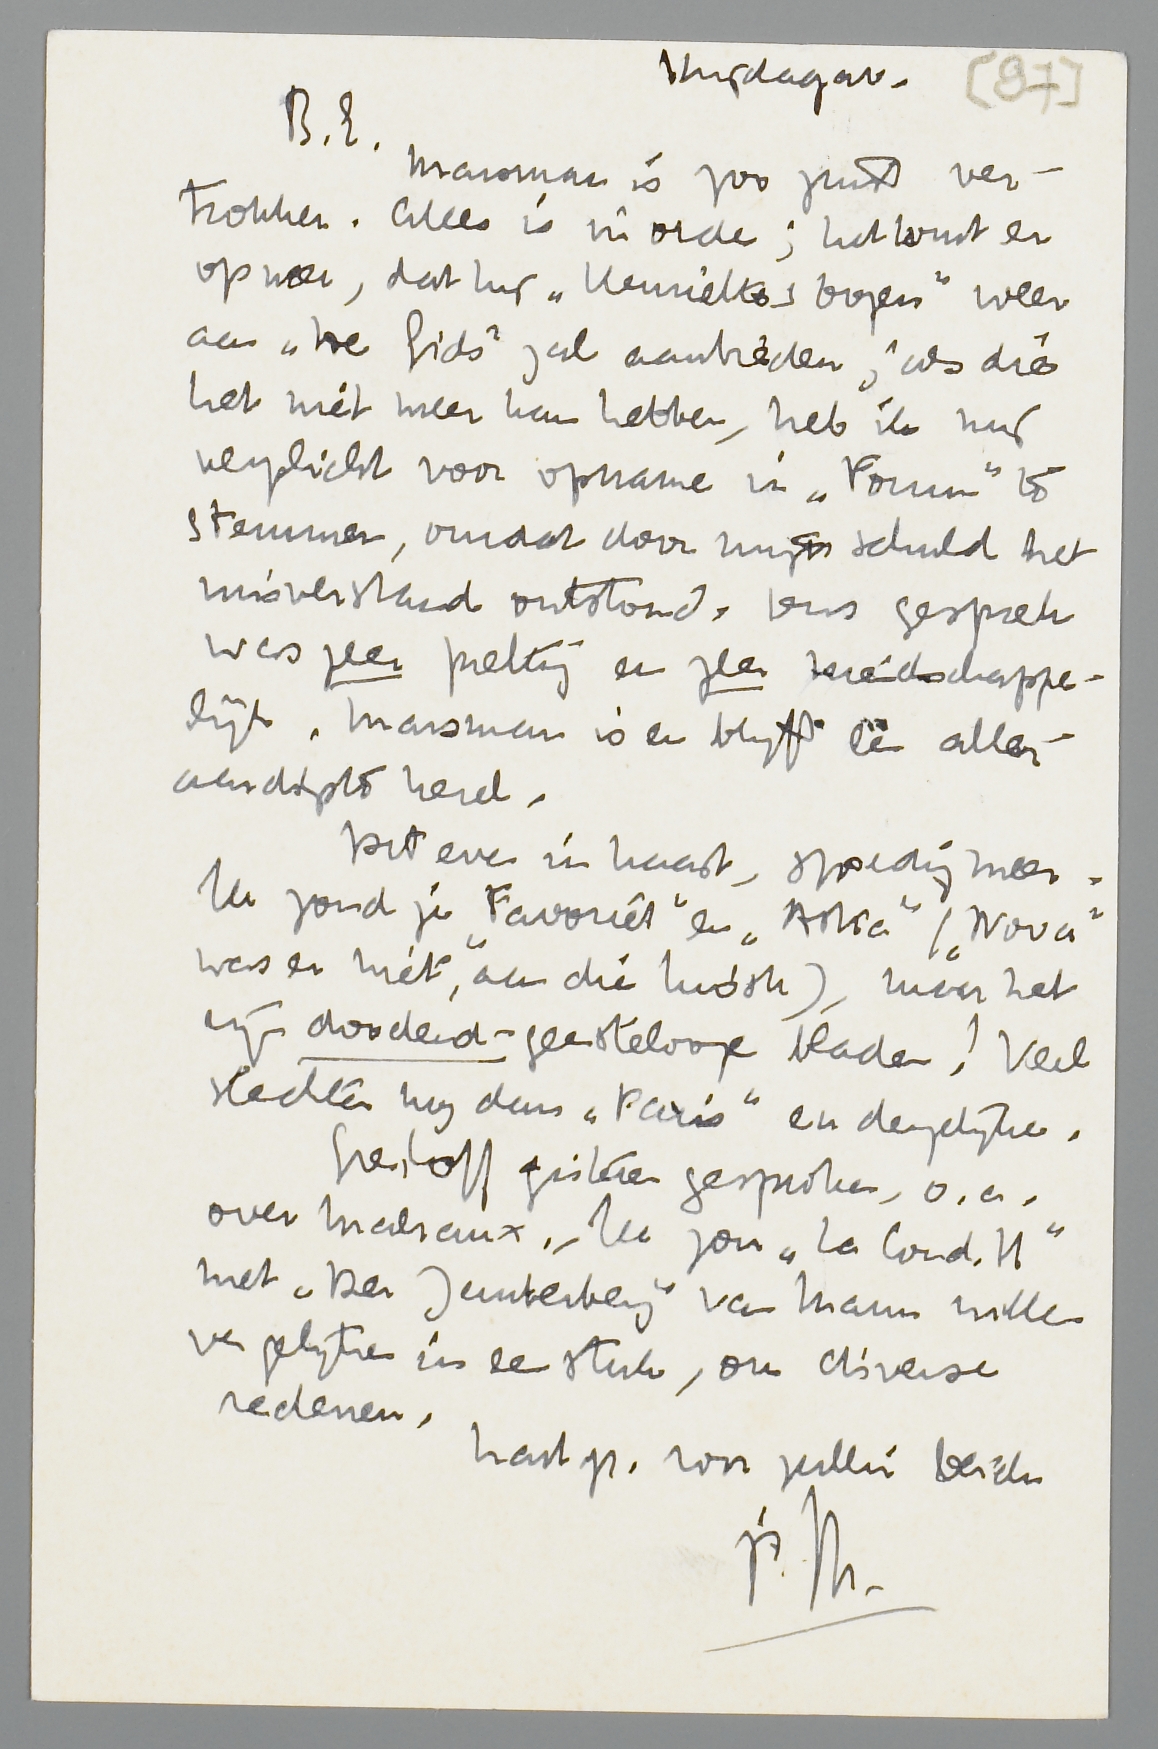 Vrijdagav. [87]
B.E.
Marsman is zoo juist ver-
trokken. Alles is in orde; het komt er
op neer, dat hij „Henriettes oogen” weer
aan „De Gids” zal aanbieden; als die
het niet meer kan hebben, heb ik mij
verplicht voor opname in „Forum” te
stemmen, omdat door mijn schuld het
misverstand ontstond. Ons gesprek
was zeer prettig en zeer vriendschappe-
lijk. Marsman is en blijft een aller-
aardigste kerel.
Dit even in haast, spoedig meer.
Ik zond je „Favoriet” en „Astra” („Nova”
was er niet, aan die kiosk), maar het
zijn doodend-geestelooze bladen! Veel
slechter nog dan „Paris” en dergelijke.
Greshoff gisteren gesproken, o.a.
over Malraux. Ik zou „La Cond. H”
met „Der Zauberberg” van Mann willen
vergelijken in een stuk, om diverse
redenen.
Hart. gr. voor jullie beiden
je M.